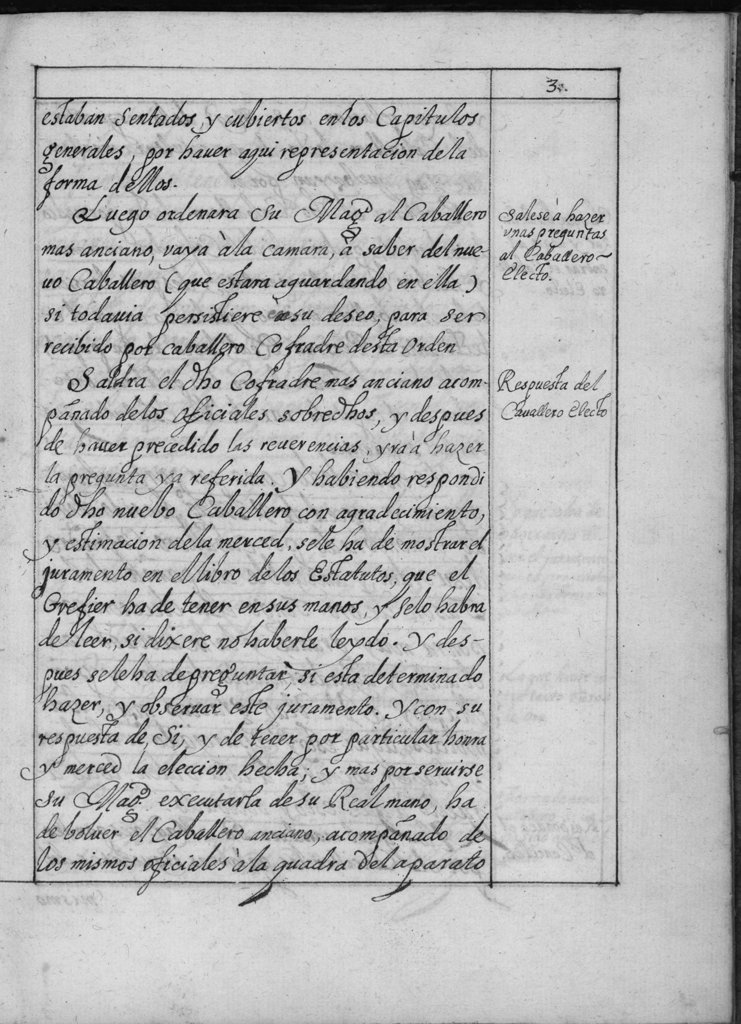 3.
estaban sentados, y cubiertos en los Capitulos
generales, por haver aqui representacion de la
forma dellos.
Luego ordenara su Magd. al Caballero
mas anciano, vaya à la camara, à saber del nue-
uo Caballero (que estara aguardando en ella)
si todavia persistiere en su deseo, para ser
recibido por caballero Cofradre desta Orden
Salese à hazer
vnas preguntas
al Caballero
Electo.
Saldra el dho Cofradre mas anciano acom-
pañado de los oficiales sobredhos, y despues
de haver precedido las reuerencias, yrà à hazer
la pregunta ya referida. Y habiendo respondi
do dho nuebo Caballero con agradecimiento,
y estimacion de la merced, sele ha de mostrar el
juramento en el libro de los Estatutos, que el
Grefier ha de tener en sus manos, y selo habra
de leer, si dixere no haberle leydo. Y des-
pues sele ha de preguntar, si esta determinado
hazer, y observar este juramento. Y con su
respuesta de, Si, y de tener por particular honra
y merced la eleccion hecha, y mas por seruirse
su Magd. executarla de su Real mano, ha
de boluer el Caballero anciano, acompañado de
los mismos oficiales à la quadra del aparato
Respuesta del
Cauallero Electo